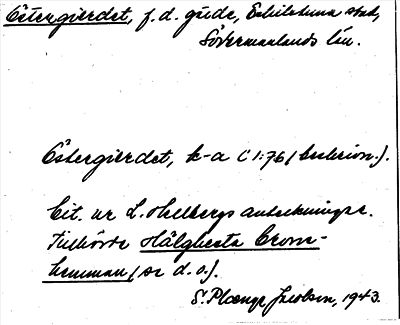 Östergierdet, f.d. gårde, Eskilstuna stad,
Södermanlands län.
Östergierdet, k-a C 1:76 / beskrivn.).
Cit. ur L. Hellbergs anteckningar.
Tillhörde Hälghesta Crono-
hemman (se d. o.).
S. Plænge Jacobson, 1943.